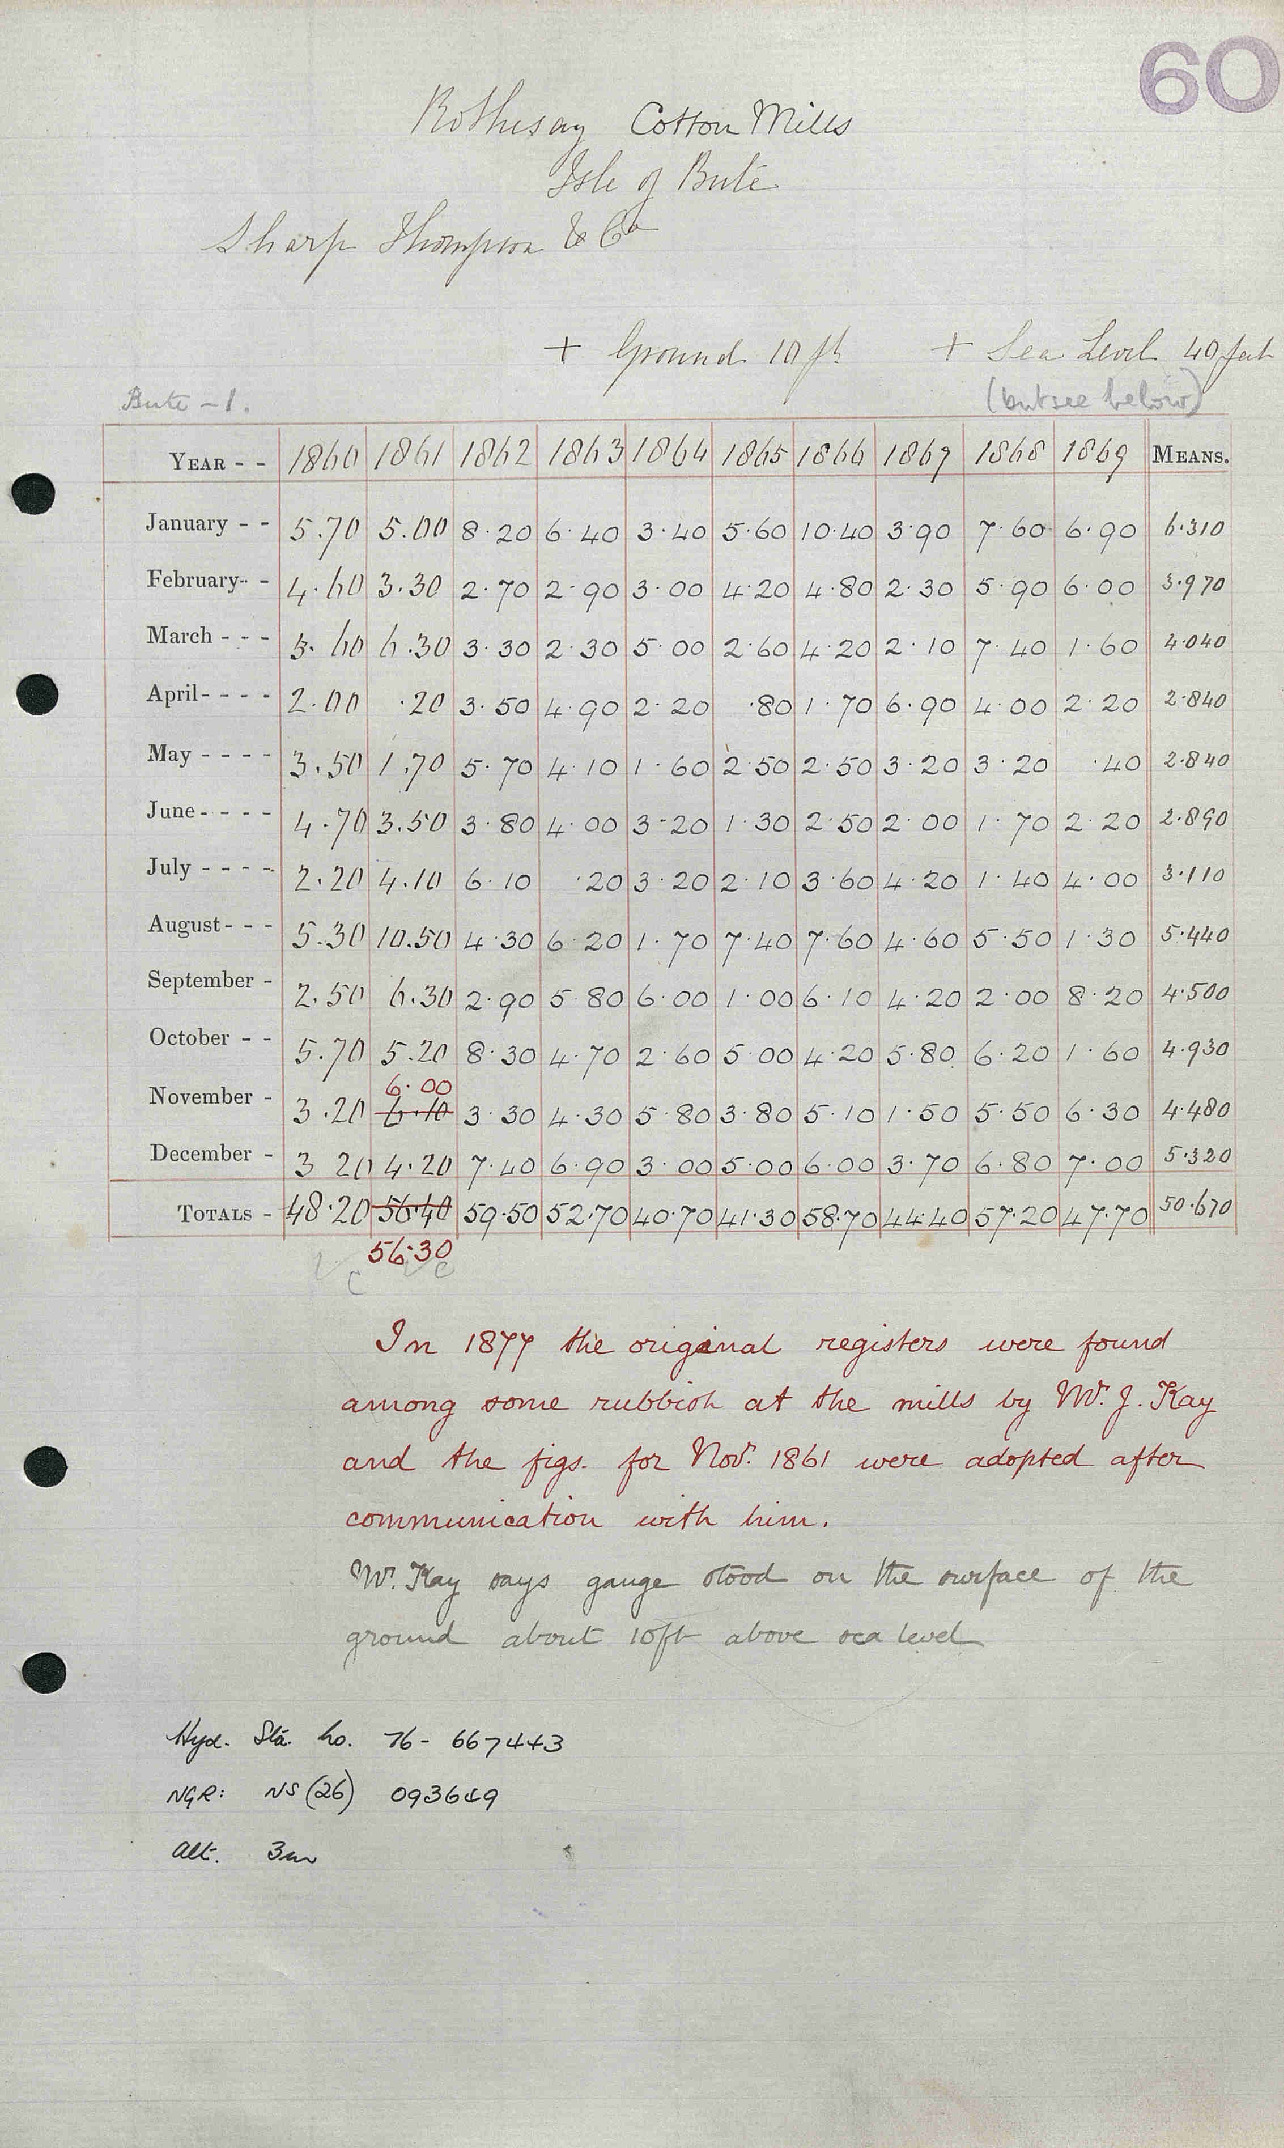 60
Rothesay Cotton Mills
Isle of Bute
Sharp Thompson & Co
+ Ground 10 ft + Sea Level 40 feet
Bute - 1. (but see below)
YEAR - - 1860 1861 1862 1863 1864 1865 1866 1867 1868 1869 MEANS.
January - - 5.70 5.00 8.20 6.40 3.40 5.60 10.40 3.90 7.60 6.90 6.310
February - - 4.60 3.30 2.70 2.90 3.00 4.20 4.80 2.30 5.90 6.00 3.970
March - - - 3.60 6.30 3.30 2.30 5.00 2.60 4.20 2.10 7.40 1.60 4.040
April - - - - 2.00 .20 3.50 4.90 2.20 .80 1.70 6.90 4.00 2.20 2.840
May - - - - 3.50 1.70 5.70 4.10 1.60 2.50 2.50 3.20 3.20 .40 2.840
June - - - - 4.70 3.50 3.80 4.00 3.20 1.30 2.50 2.00 1.70 2.20 2.890
July - - - - 2.20 4.10 6.10 .20 3.20 2.10 3.60 4.20 1.40 4.00 3.110
August - - - 5.30 10.50 4.30 6.20 1.70 7.40 7.60 4.60 5.50 1.30 5.440
September - 2.50 6.30 2.90 5.80 6.00 1.00 6.10 4.20 2.00 8.20 4.500
October - - 5.70 5.20 8.30 4.70 2.60 5.00 4.20 5.80 6.20 1.60 4.930
6.00
November - 3.20 6.10 3.30 4.30 5.80 3.80 5.10 1.50 5.50 6.30 4.480
December - 3.20 4.20 7.40 6.90 3.00 5.00 6.00 3.70 6.80 7.00 5.320
TOTALS - 48.20 56.40 59.50 52.70 40.70 41.30 58.70 44.40 57.20 47.70 50.670
56.30
c c
In 1877 the original registers were found
among some rubbish at the mills by Mr. J. Kay
and the figs. for Nov. 1861 were adopted after
communication with him.
Mr. Kay says gauge stood on the surface of the
ground about 10ft above sea level
Hyd. Sta. no. 76- 667443
NGR: NS (26) 093649
Alt. 3m